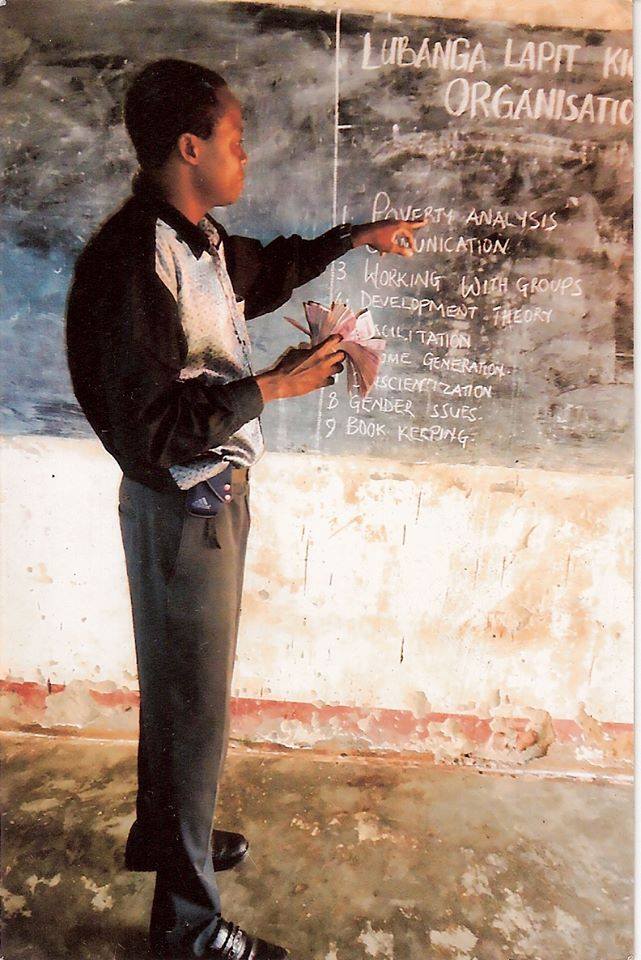 LUBANGA LAPIT
ORGANISATIO
1. POVERTY ANALYSIS
UNICATION
3 WORKING WITH GROUPS
4. DEVELOPMENT THEORY
ACILITATION
OME GENERATION.
SCIENTIZATION
8 GENDER ISSUES.
9 BOOK KEEPING.